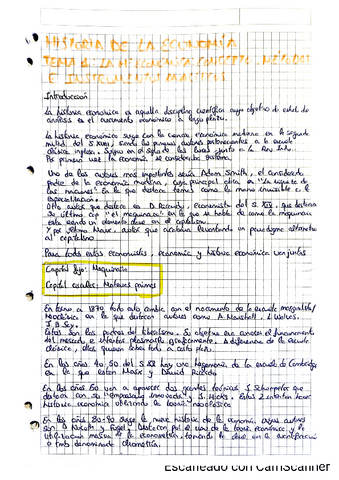 HISTORIA DE LA ECONOMÍA
TEMA 1: LA Hª ECONÓMICA: CONCEPTO, MÉTODOS
E INSTRUMENTOS ANALÍTICOS
Introducción
La historia económica es aquella disciplina científica cuyo objetivo de estudio
análisis es el crecimiento económico a largo plazo.
La historia económica surge con la ciencia económica moderna en la segunda
mitad del S.XVIII, siendo los primeros autores pertenecientes a la escuela
clásica inglesa. Surgen en el siglo de las luces junto a la Rev. Ind.
Por primera vez la economía se considera sistema.
Uno de los autores más importantes sería Adam Smith, el considerado
padre de la economía moderna, cuya principal obra es "La riqueza de
las naciones" en la que destaca temas como la mano invisible o la
especialización.
Otro autor que destaca es D. Ricardo, economista del S. XIX, que destaca
su último cap "el maquinaria" en la que se habla de como la maquinaria
esta siendo un elemento clave en el capitalismo.
Y por último Marx, autor que acabara levantando un paradigma alternativo
al capitalismo.
Para todos estos economistas, economía y historia económica van juntas
Capital fijo: Maquinaria
Capital circulante: Materias primas
En torno a 1870 todo esto cambia con el nacimiento de la escuela marginalista/
Neoclásica en la que destacan autores como A. Marshall, L. Walras,
J.B Say.
Estos son los padres del liberalismo. Su objetivo era conocer el funcionamiento
del mercado e intentar plasmarlo gráficamente. A diferencia de la escuela
clásica, ellos quieren saber todo a corto plazo.
En los años 40-50 del S.XX hay una hegemonía de la escuela de Cambridge
en la que están Marx y David Ricardo
En los años 50 van a aparecer dos grandes teóricos J. Schumpeter que
destaca con su "empresario innovador" y J. Hicks. Estos 2 intentan hacer
historia económica utilizando la teoría neoclásica
En los años 80-90 surge la nueva historia de la economía, cuyos autores
son D. North y Fogel. Destacan por el uso de la teoría económica y la
utilización masiva de la econometría, tomando la clave en la cuantificación
o también denominada cliometría.
Escaneado con CamScanner